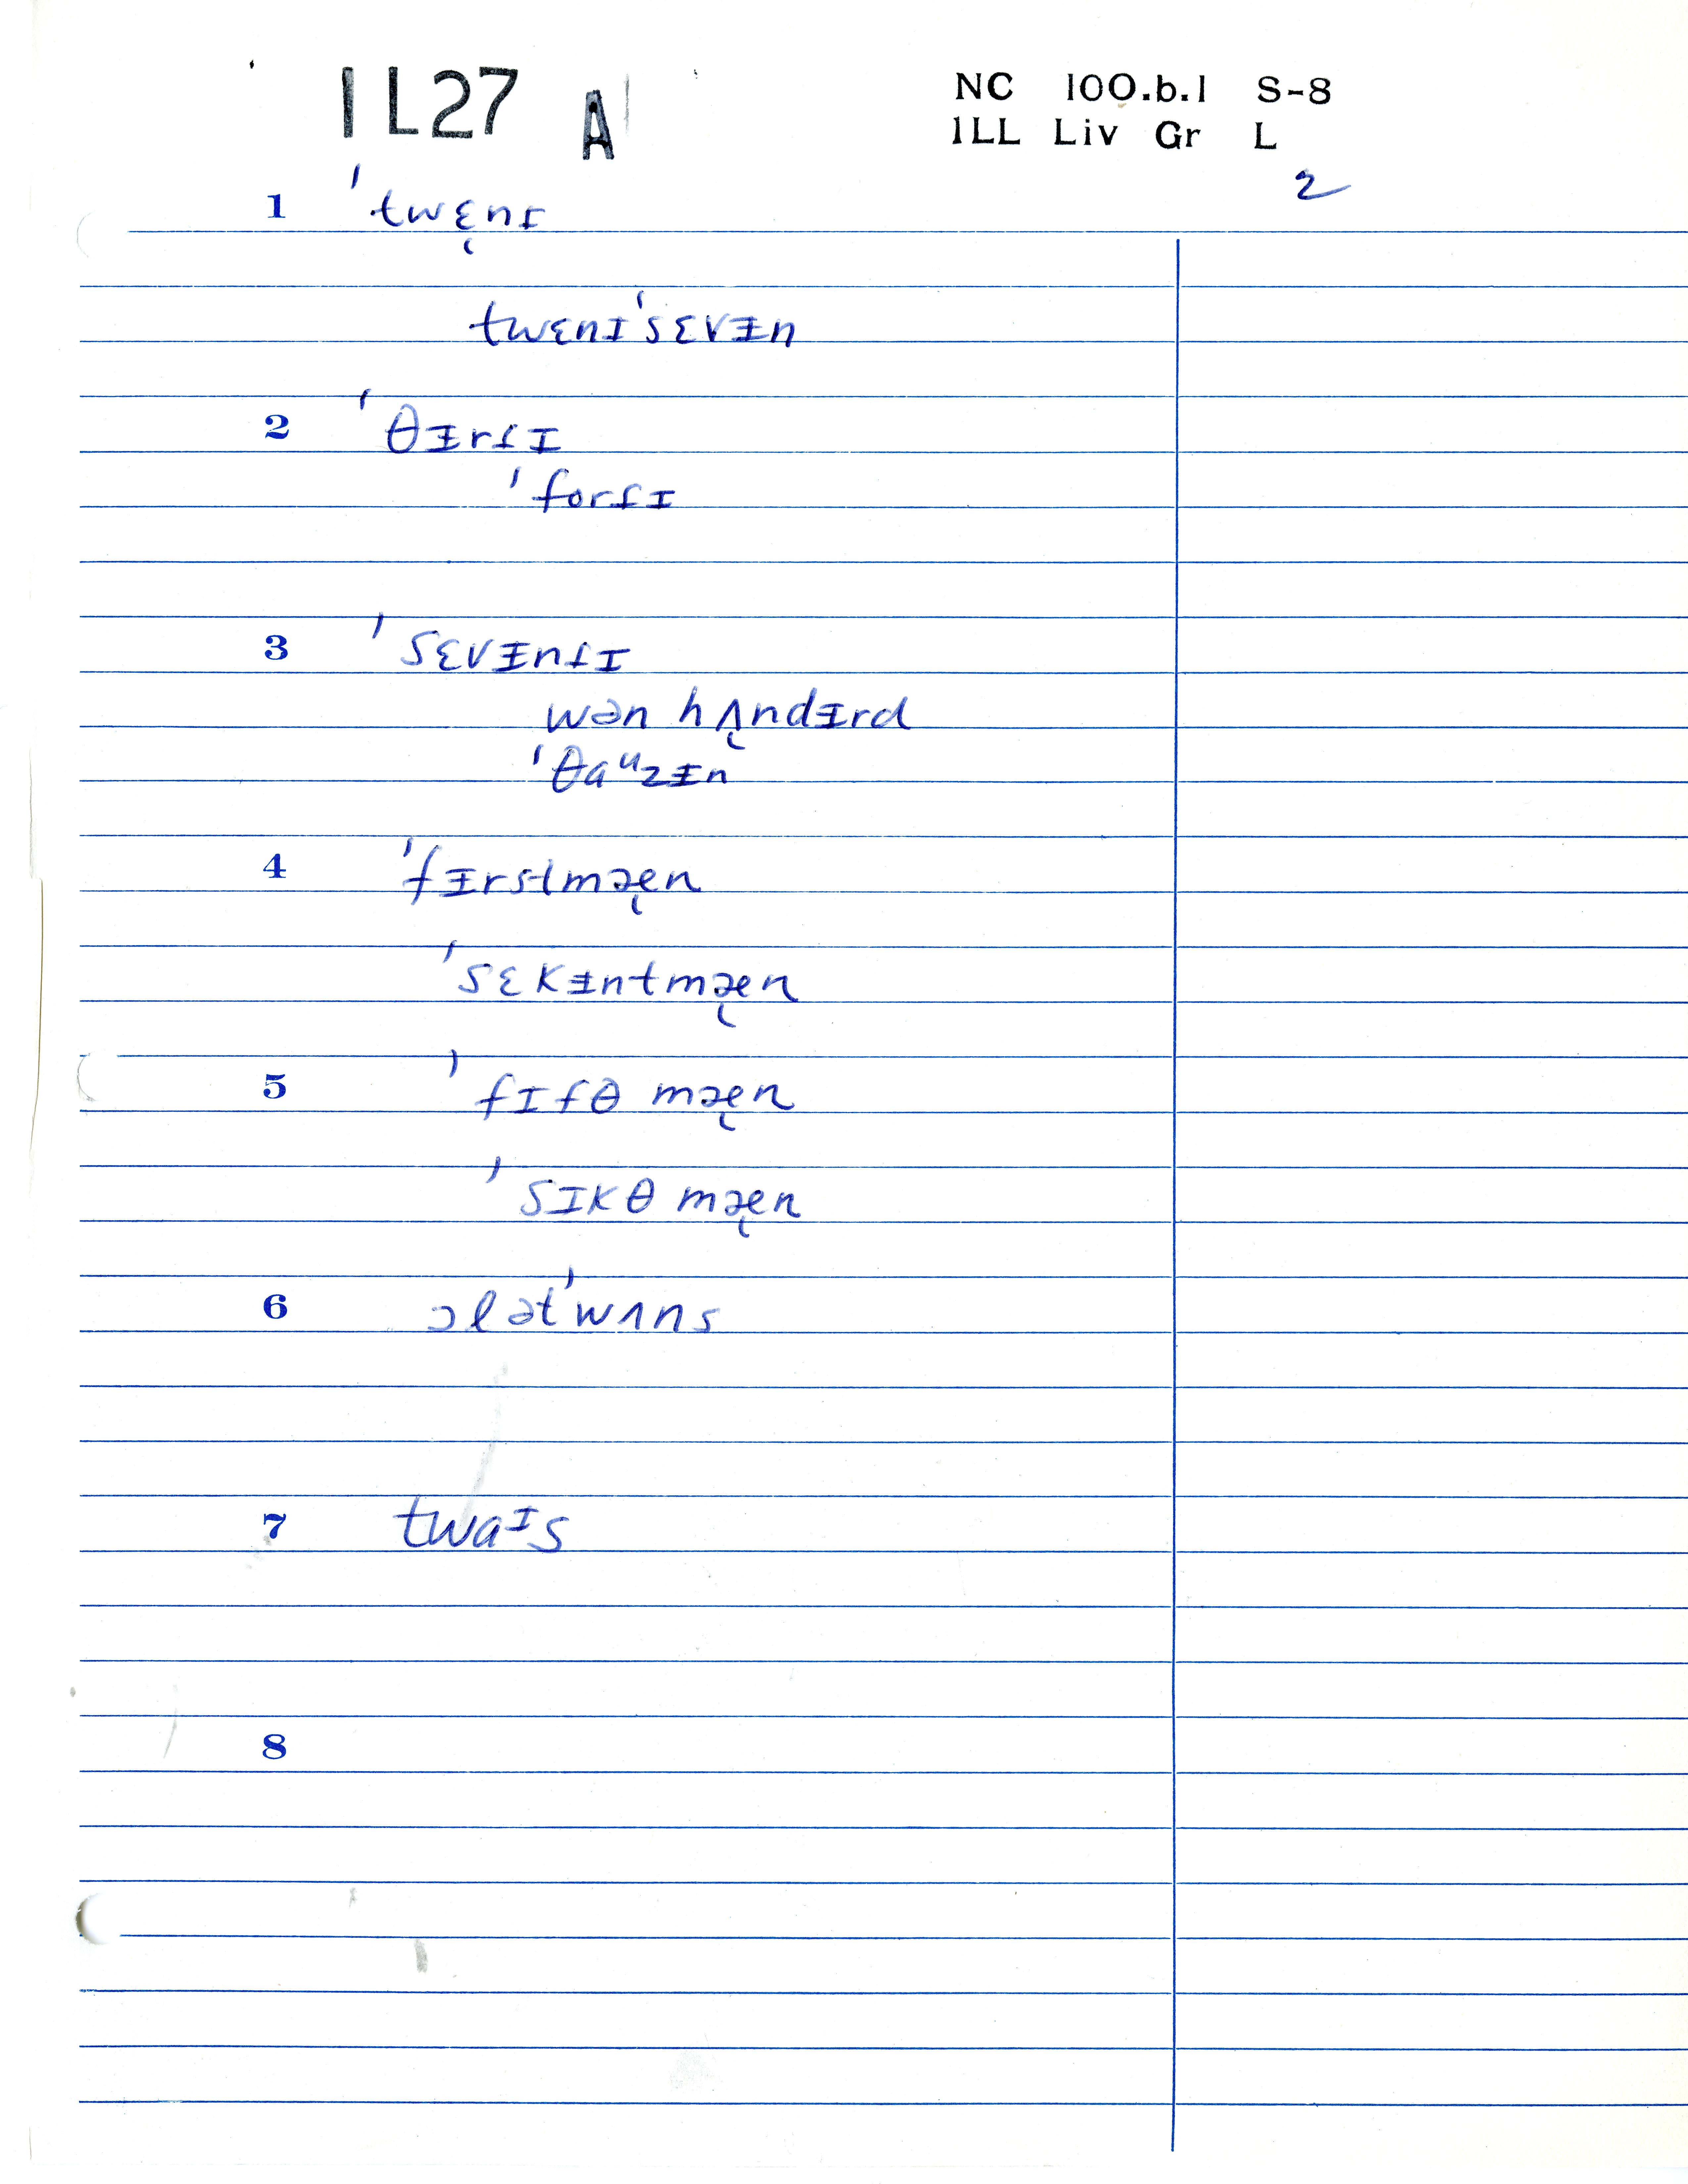 1L27 A
NC 100.b.1 S-8
ILL Liv Gr L
2
1 ˈtwɛ̨nɪ
twɛnɪˈsɛvɪ̵n
2 ˈθɪ̵rt̬ɪ
ˈfort̬ɪ
3 ˈsɛvɪ̵nt̬ɪ
wən hʌ̨ndɪ̵rd
ˈθaᵘzɪ̵n
4 ˈfɪ̵rstmæ̨n
ˈsɛkɪ̵ntmæ̨n
5 ˈfɪfθ mæ̨n
ˈsɪkθ mæ̨n
6 ɔlətˈwʌns
7 twaᶦs
8